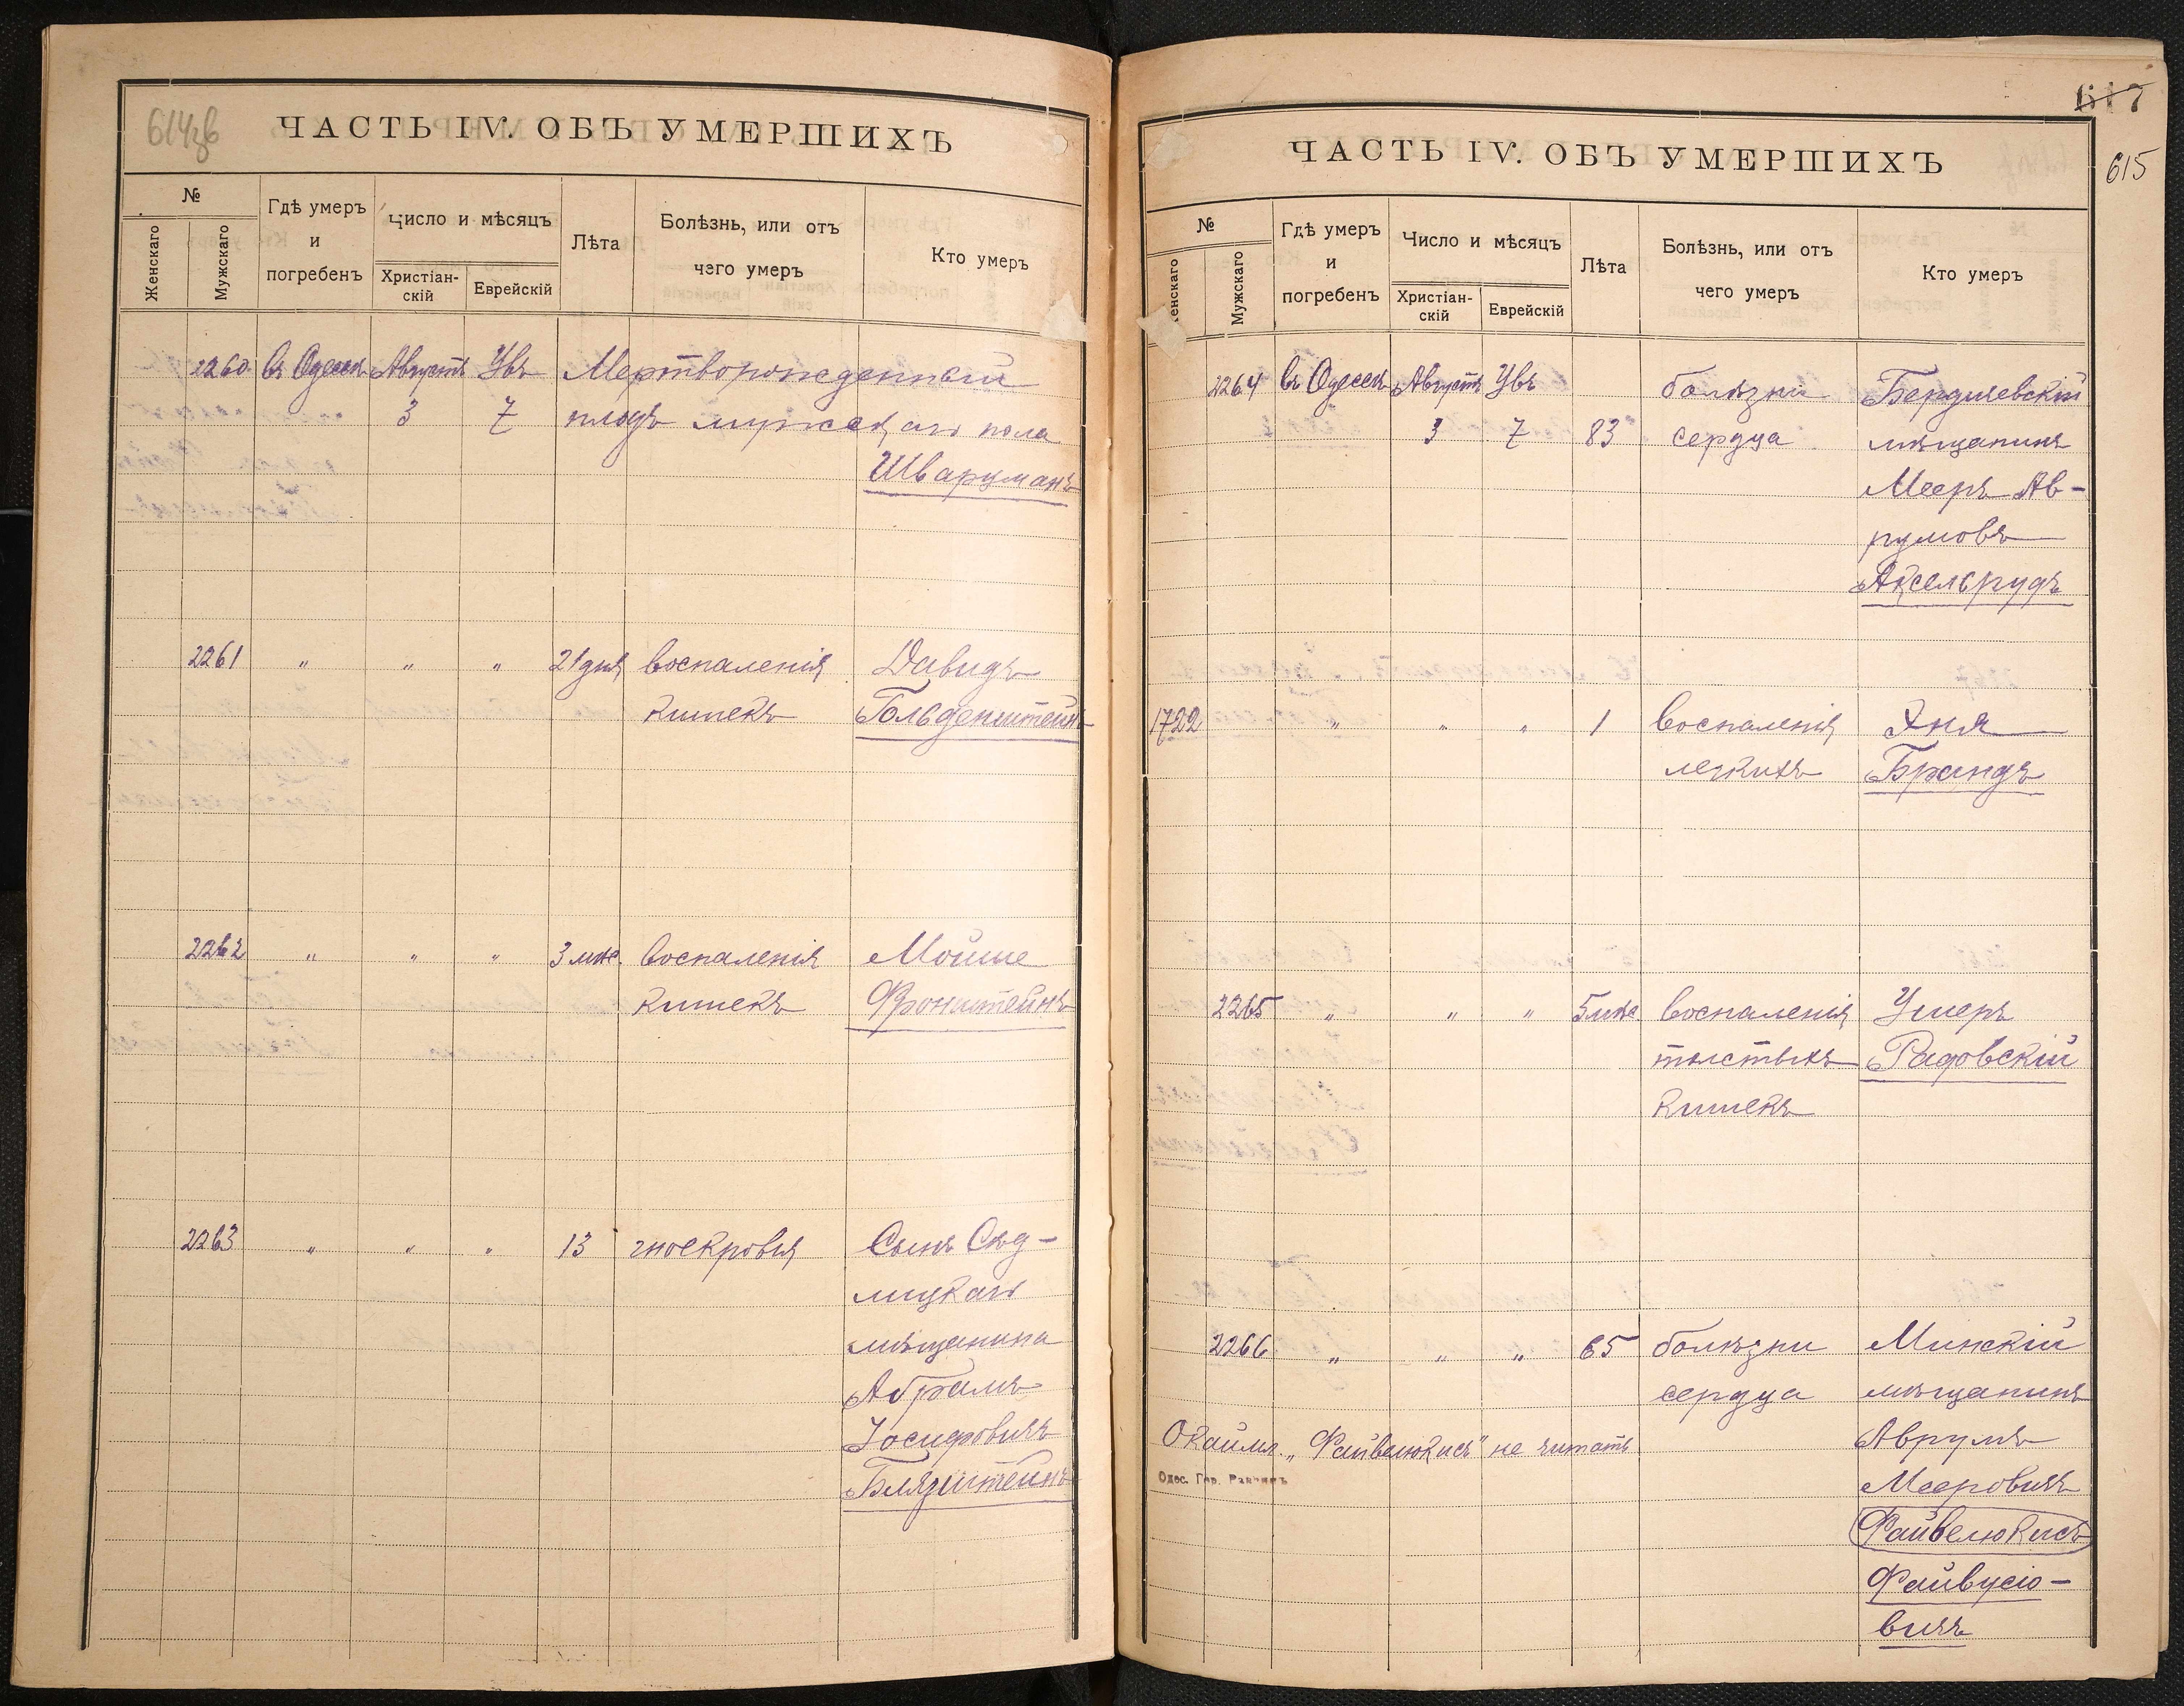 614зв
ЧАСТЬ IV. ОБЪ УМЕРШИХЪ
№
Женскаго
Мужскаго
Гдѣ умеръ
и
погребенъ
Число и мѣсяцъ
Христіан-
скій
Еврейскій
Лѣта
Болѣзнь, или отъ
чего умеръ
Кто умеръ
2260 въ Одессѣ Августъ Увъ Мертворожденный
3 7 плодъ мужскаго пола
Шварцманъ
2261 " " " 21 дня воспаленія Давидъ
кишекъ Гольденштейнъ
2262 " " " 3 мѣс. воспаленія Мойше
кишекъ Фронштейнъ
2263 " " " 13 гноекровія Сынъ Сѣд-
лицкаго
мѣщанина
Абрамъ
Іосифовичъ
Бляуштейнъ
617
615
ЧАСТЬ IV. ОБЪ УМЕРШИХЪ
№
Женскаго
Мужскаго
Гдѣ умеръ
и
погребенъ
Число и мѣсяцъ
Христіан-
скій
Еврейскій
Лѣта
Болѣзнь, или отъ
чего умеръ
Кто умеръ
2264 въ Одессѣ Августъ Увъ болѣзни Бердичевскій
3 7 83 сердца мѣщанинъ
Мееръ Ав-
румовъ
Аксельрудъ
1722 " " " 1 воспаленія Хня
легкихъ Брандъ
2265 " " " 5 мѣс воспаленія Ушеръ
толстыхъ Радовскій
кишекъ
2266 " " " 65 болѣзни Минскій
сердца мѣщанинъ
Окаймл. „Файвелюкисъ" не читать Аврумъ
Одес. Гор. Раввинъ Мееровичъ
Файвелюкисъ
Файвусіо-
вичъ